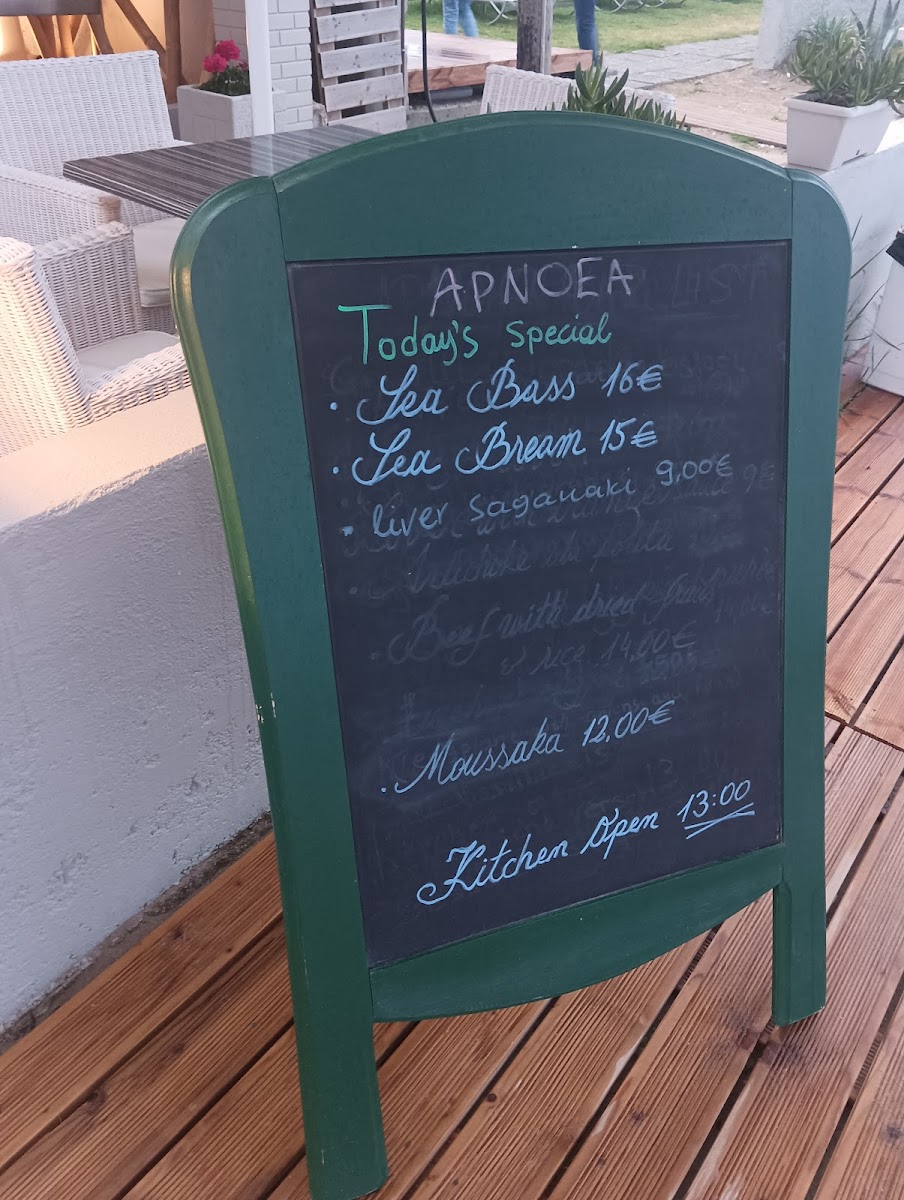 APNOEA
Today's special
• Sea Bass 16€
• Sea Bream 15€
• liver saganaki 9,00€
• Beef with dried
14,00€
• Moussaka 12,00€
Kitchen Open 13:00